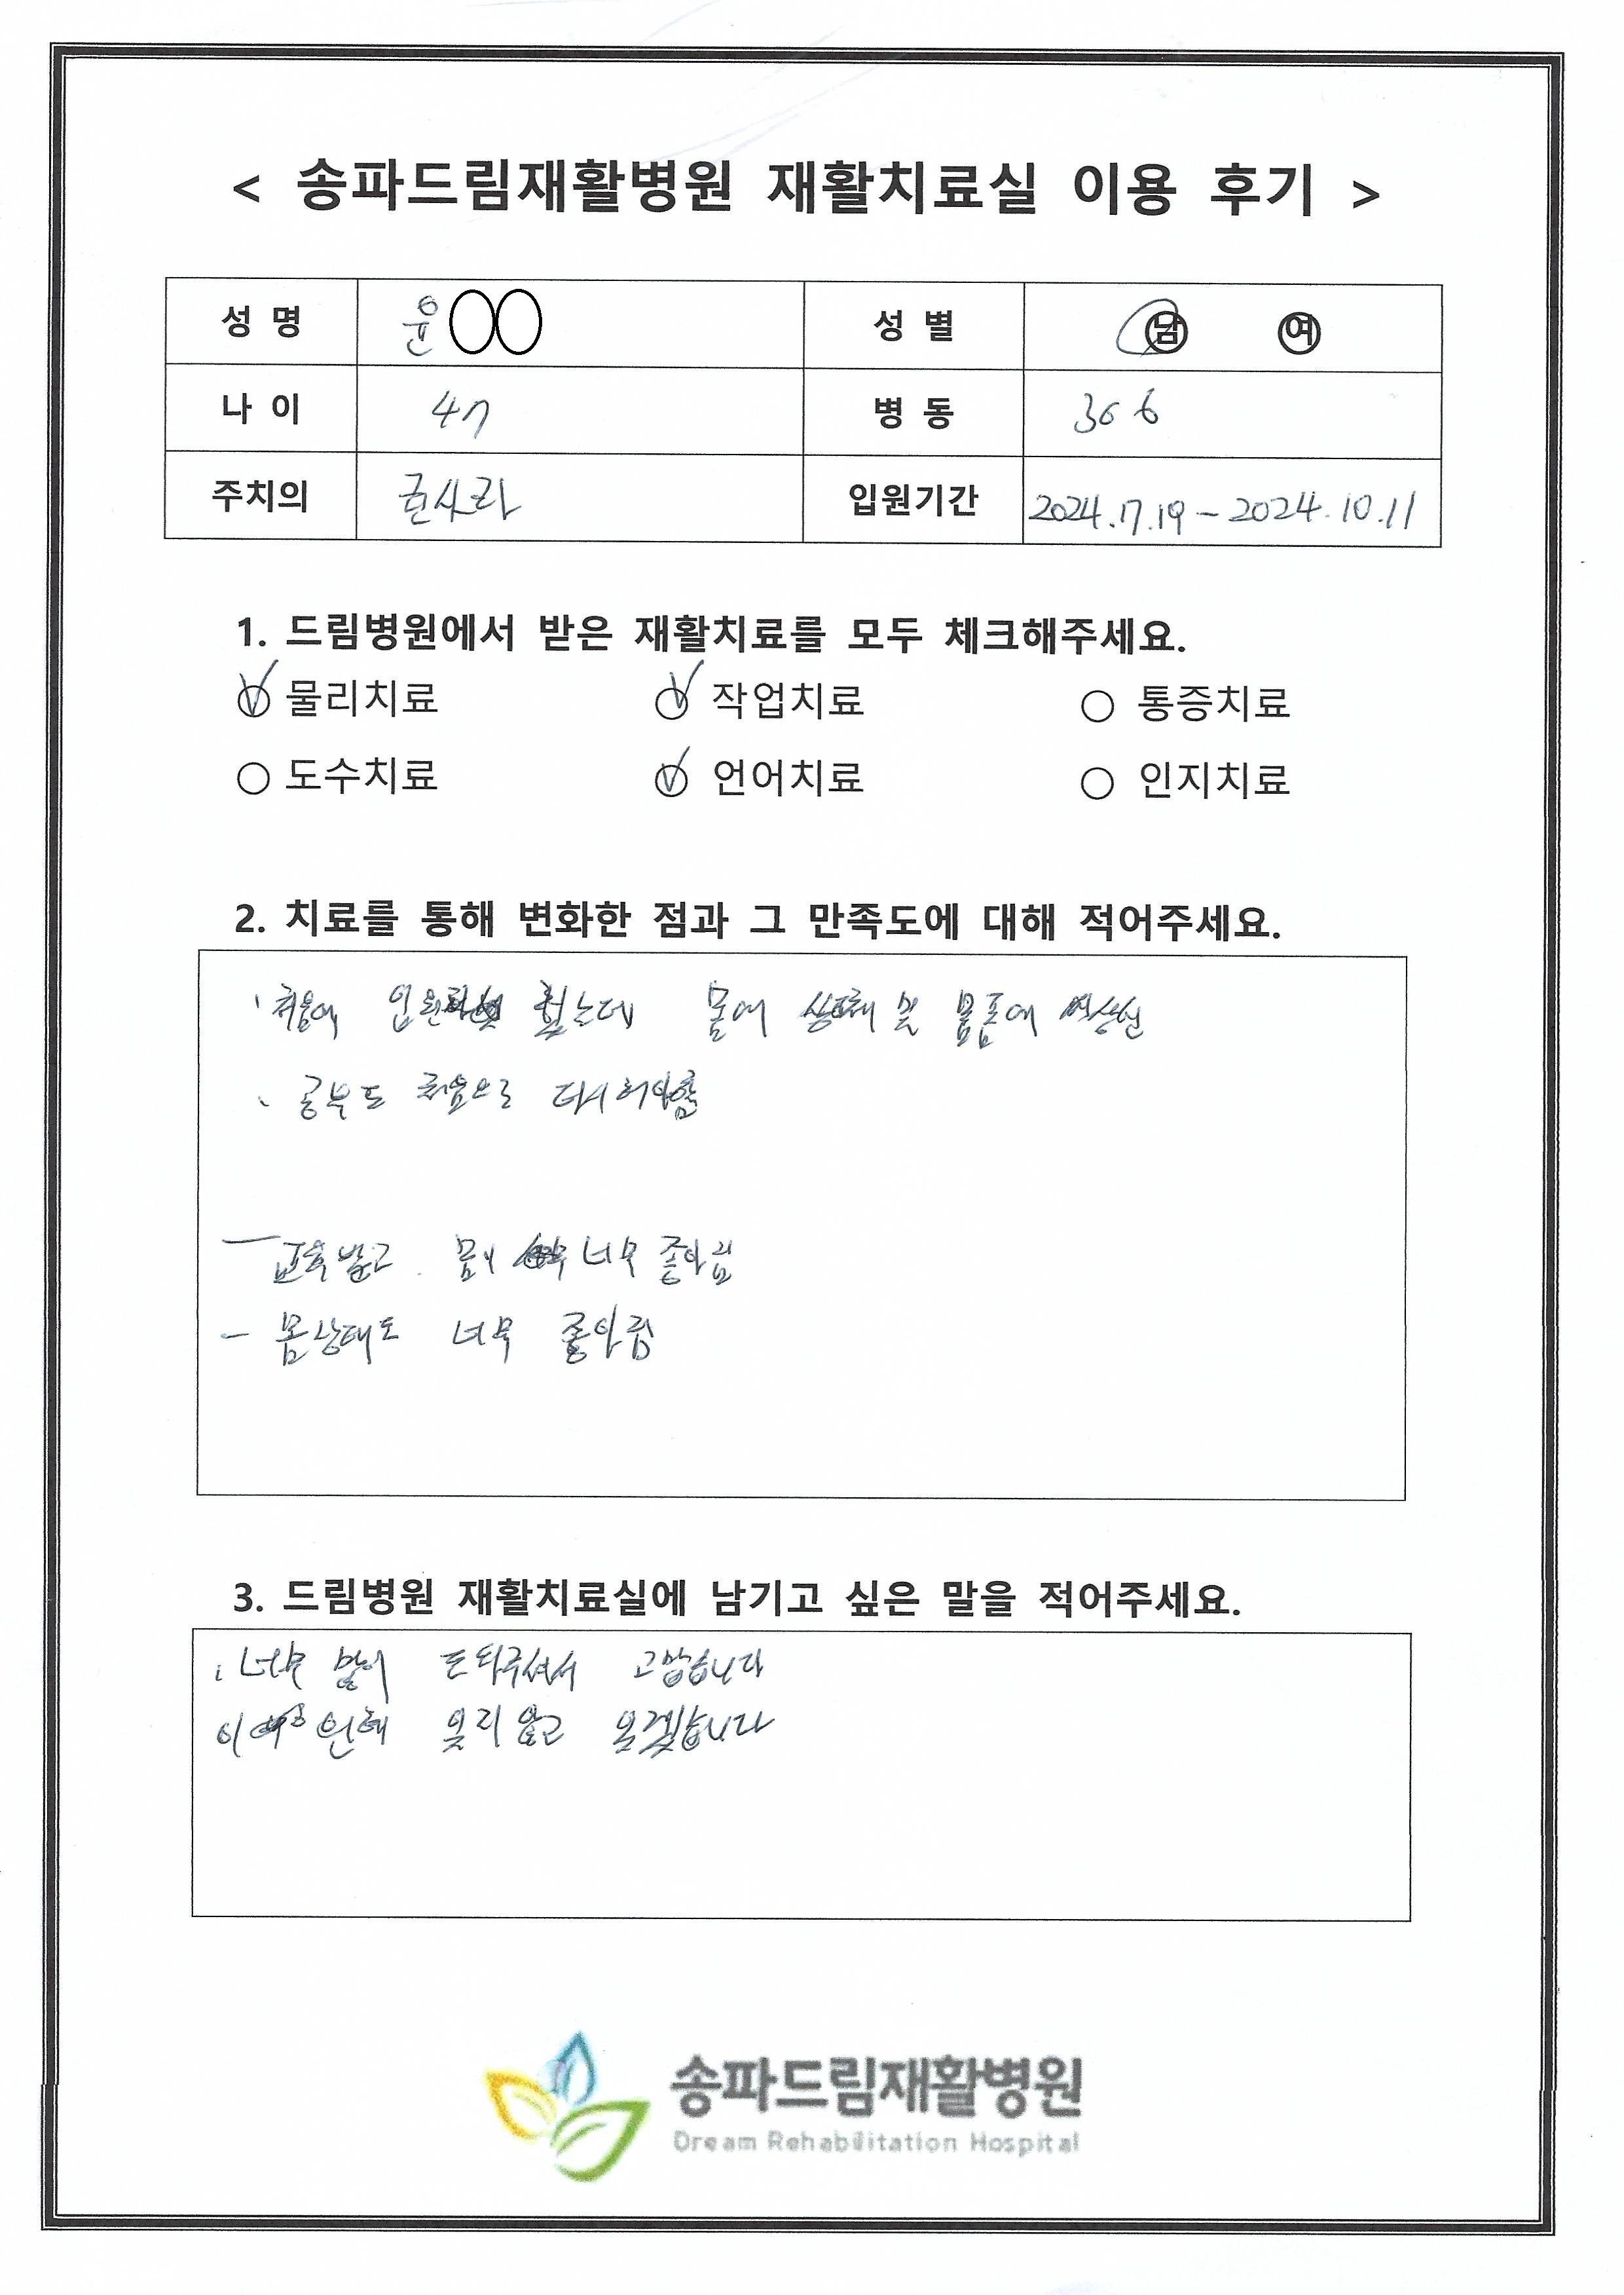 < 송파드림재활병원 재활치료실 이용 후기 >
성 명 윤○○ 성 별 남 여
나 이 47 병 동 306
주치의 입원기간 2024.7.19 - 2024.10.11
1. 드림병원에서 받은 재활치료를 모두 체크해주세요.
물리치료 작업치료 통증치료
도수치료 언어치료 인지치료
2. 치료를 통해 변화한 점과 그 만족도에 대해 적어주세요.
처음에 입원 했는데 몸에 및
공부도 처음으로 다시
- 교육받고 몸이 너무 좋아짐
- 몸상태도 너무 좋아짐
3. 드림병원 재활치료실에 남기고 싶은 말을 적어주세요.
너무 많이 도와주셔서 고맙습니다
이 은혜 잊지 않고
송파드림재활병원
Dream Rehabilitation Hospital